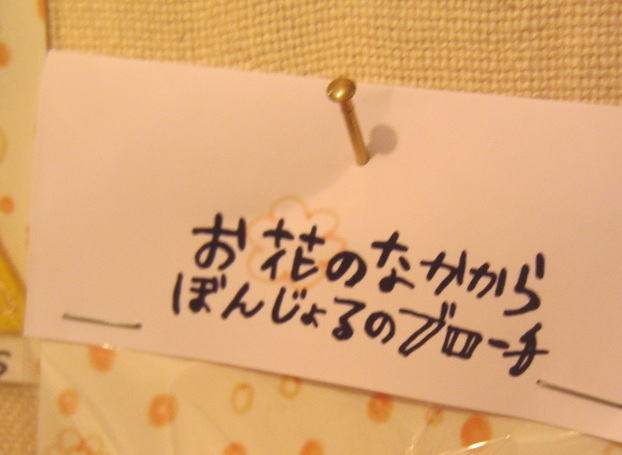 お花のなかから
ぼんじょるのブローチ